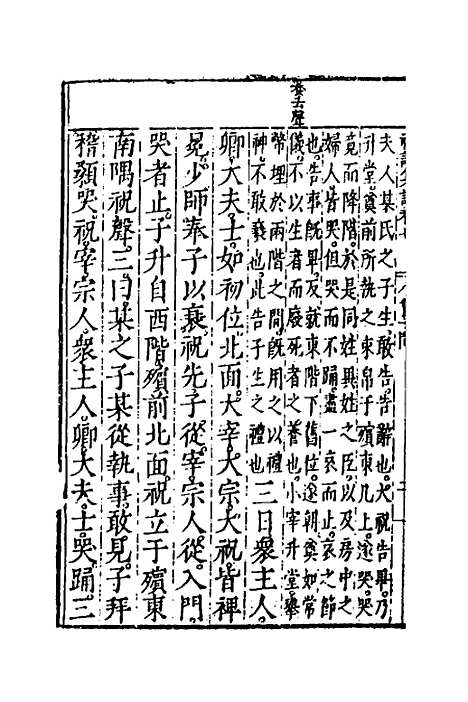 夫人某氏之子生敢告告辭也大祝告畢乃
升堂奠前所執之束帛于殯東几上遂哭哭
竟而降階於是同姓異姓之臣以及房中之
婦人皆哭但哭而不踊盡一哀而止哀之節
也告事旣畢反就東階下舊位遂朝奠如常
儀不以生者而廢死者之養也小宰升堂舉
養去聲
幣埋於兩階之間旣用之以禮
神不敢褻也此告子生之禮也
三日衆主人
卿大夫士如初位北面大宰大宗大祝皆裨
冕少師奉子以衰祝先子從宰宗人從入門
哭者止子升自西階殯前北面祝立于殯東
南隅祝聲三曰某之子某從執事敢見子拜
稽顙哭祝宰宗人衆主人卿大夫士哭踊三